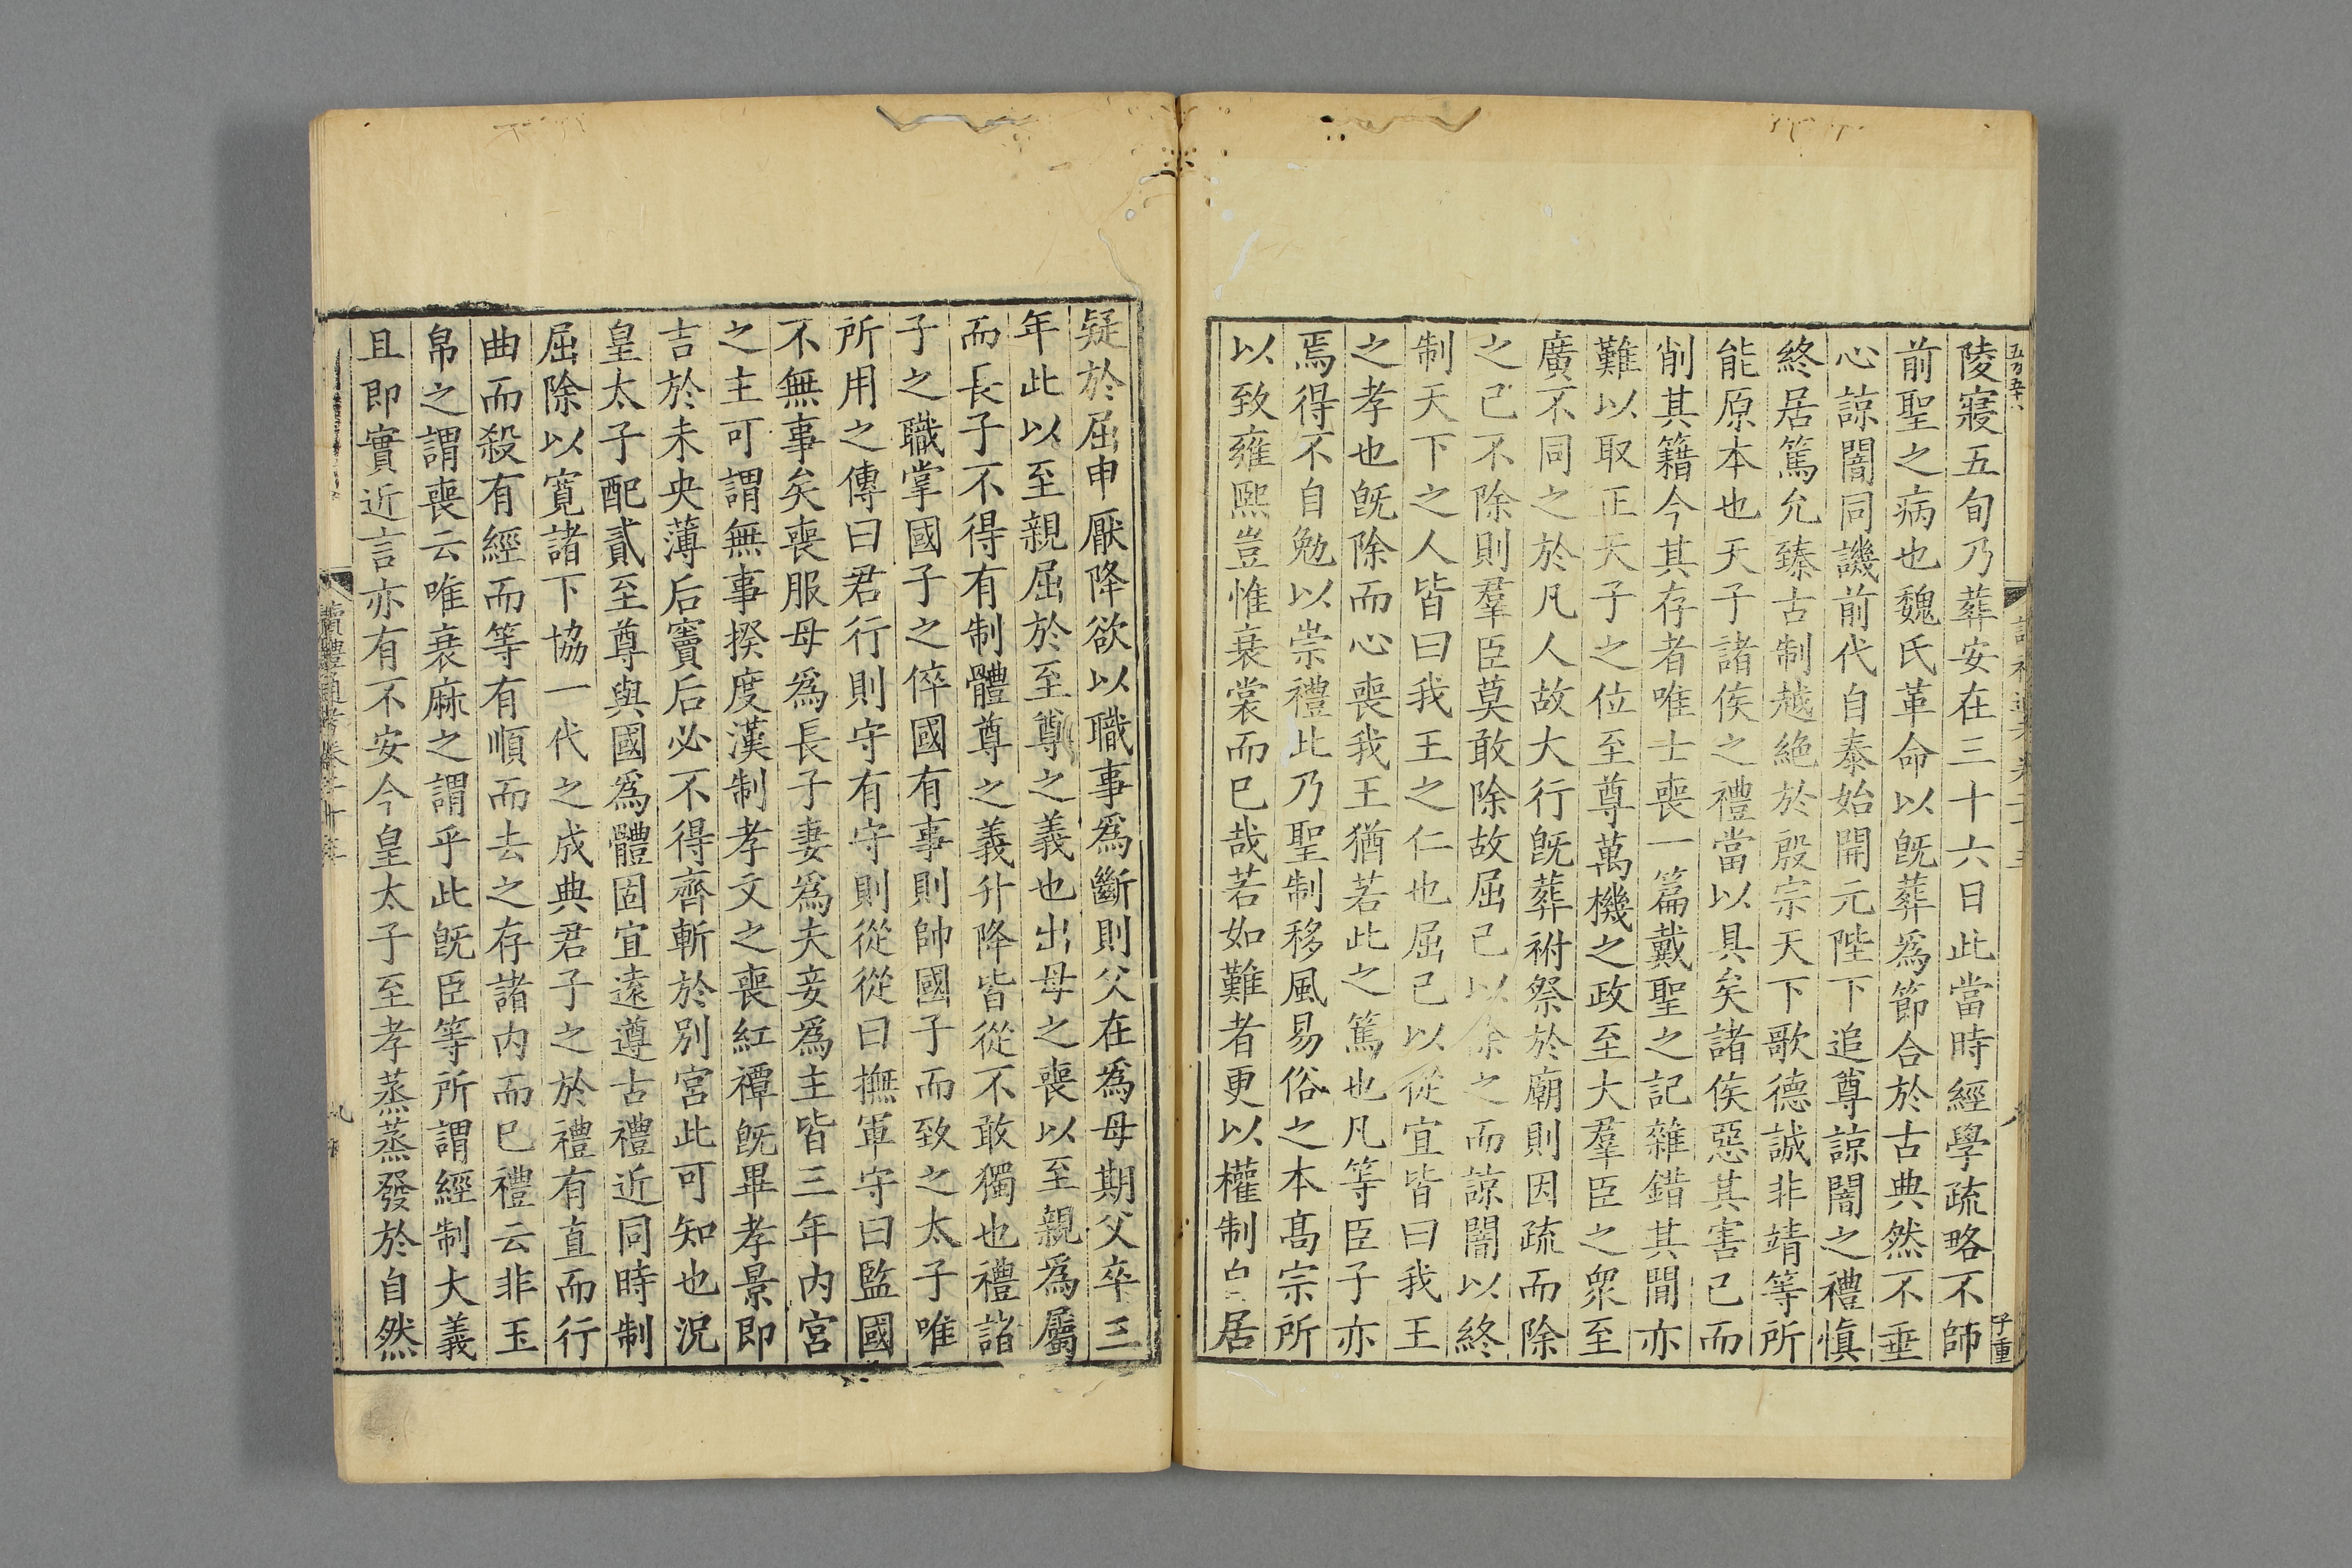 陵寢五旬乃葬安在三十六日此當時經學疏略不師
前聖之病也魏氏革命以旣葬爲節合於古典然不垂
心諒闇同譏前代自泰始開元陛下追尊諒闇之禮慎
終居篤允臻古制越絶於殷宗天下歌德誠非靖等所
能原本也天子諸侯之禮當以具矣諸侯惡其害己而
削其籍今其存者唯士喪一篇戴聖之記雜錯其閒亦
難以取正天子之位至尊萬機之政至大羣臣之衆至
廣不同之於凡人故大行旣葬祔祭於廟則因疏而除
之己不除則羣臣莫敢除故屈己以除之而諒闇以終
制天下之人皆曰我王之仁也屈己以從宜皆曰我王
之孝也旣除而心喪我王猶若此之篤也凡等臣子亦
焉得不自勉以崇禮此乃聖制移風易俗之本髙宗所
以致雍熙豈惟衰裳而已哉若如難者更以權制自居
疑於屈申厭降欲以職事爲斷則父在爲母期父卒三
年此以至親屈於至尊之義也出母之喪以至親爲屬
而長子不得有制體尊之義升降皆從不敢獨也禮諸
子之職掌國子之倅國有事則帥國子而致之太子唯
所用之傳曰君行則守有守則從從曰撫軍守曰監國
不無事矣喪服母爲長子妻爲夫妾爲主皆三年内宮
之主可謂無事揆度漢制孝文之喪紅禫旣畢孝景即
吉於未央薄后竇后必不得齊斬於別宮此可知也況
皇太子配貳至尊與國爲體固宜遠遵古禮近同時制
屈除以寬諸下協一代之成典君子之於禮有直而行
曲而殺有經而等有順而去之存諸内而已禮云非玉
帛之謂喪云唯衰麻之謂乎此旣臣等所謂經制大義
且即實近言亦有不安今皇太子至孝蒸蒸發於自然